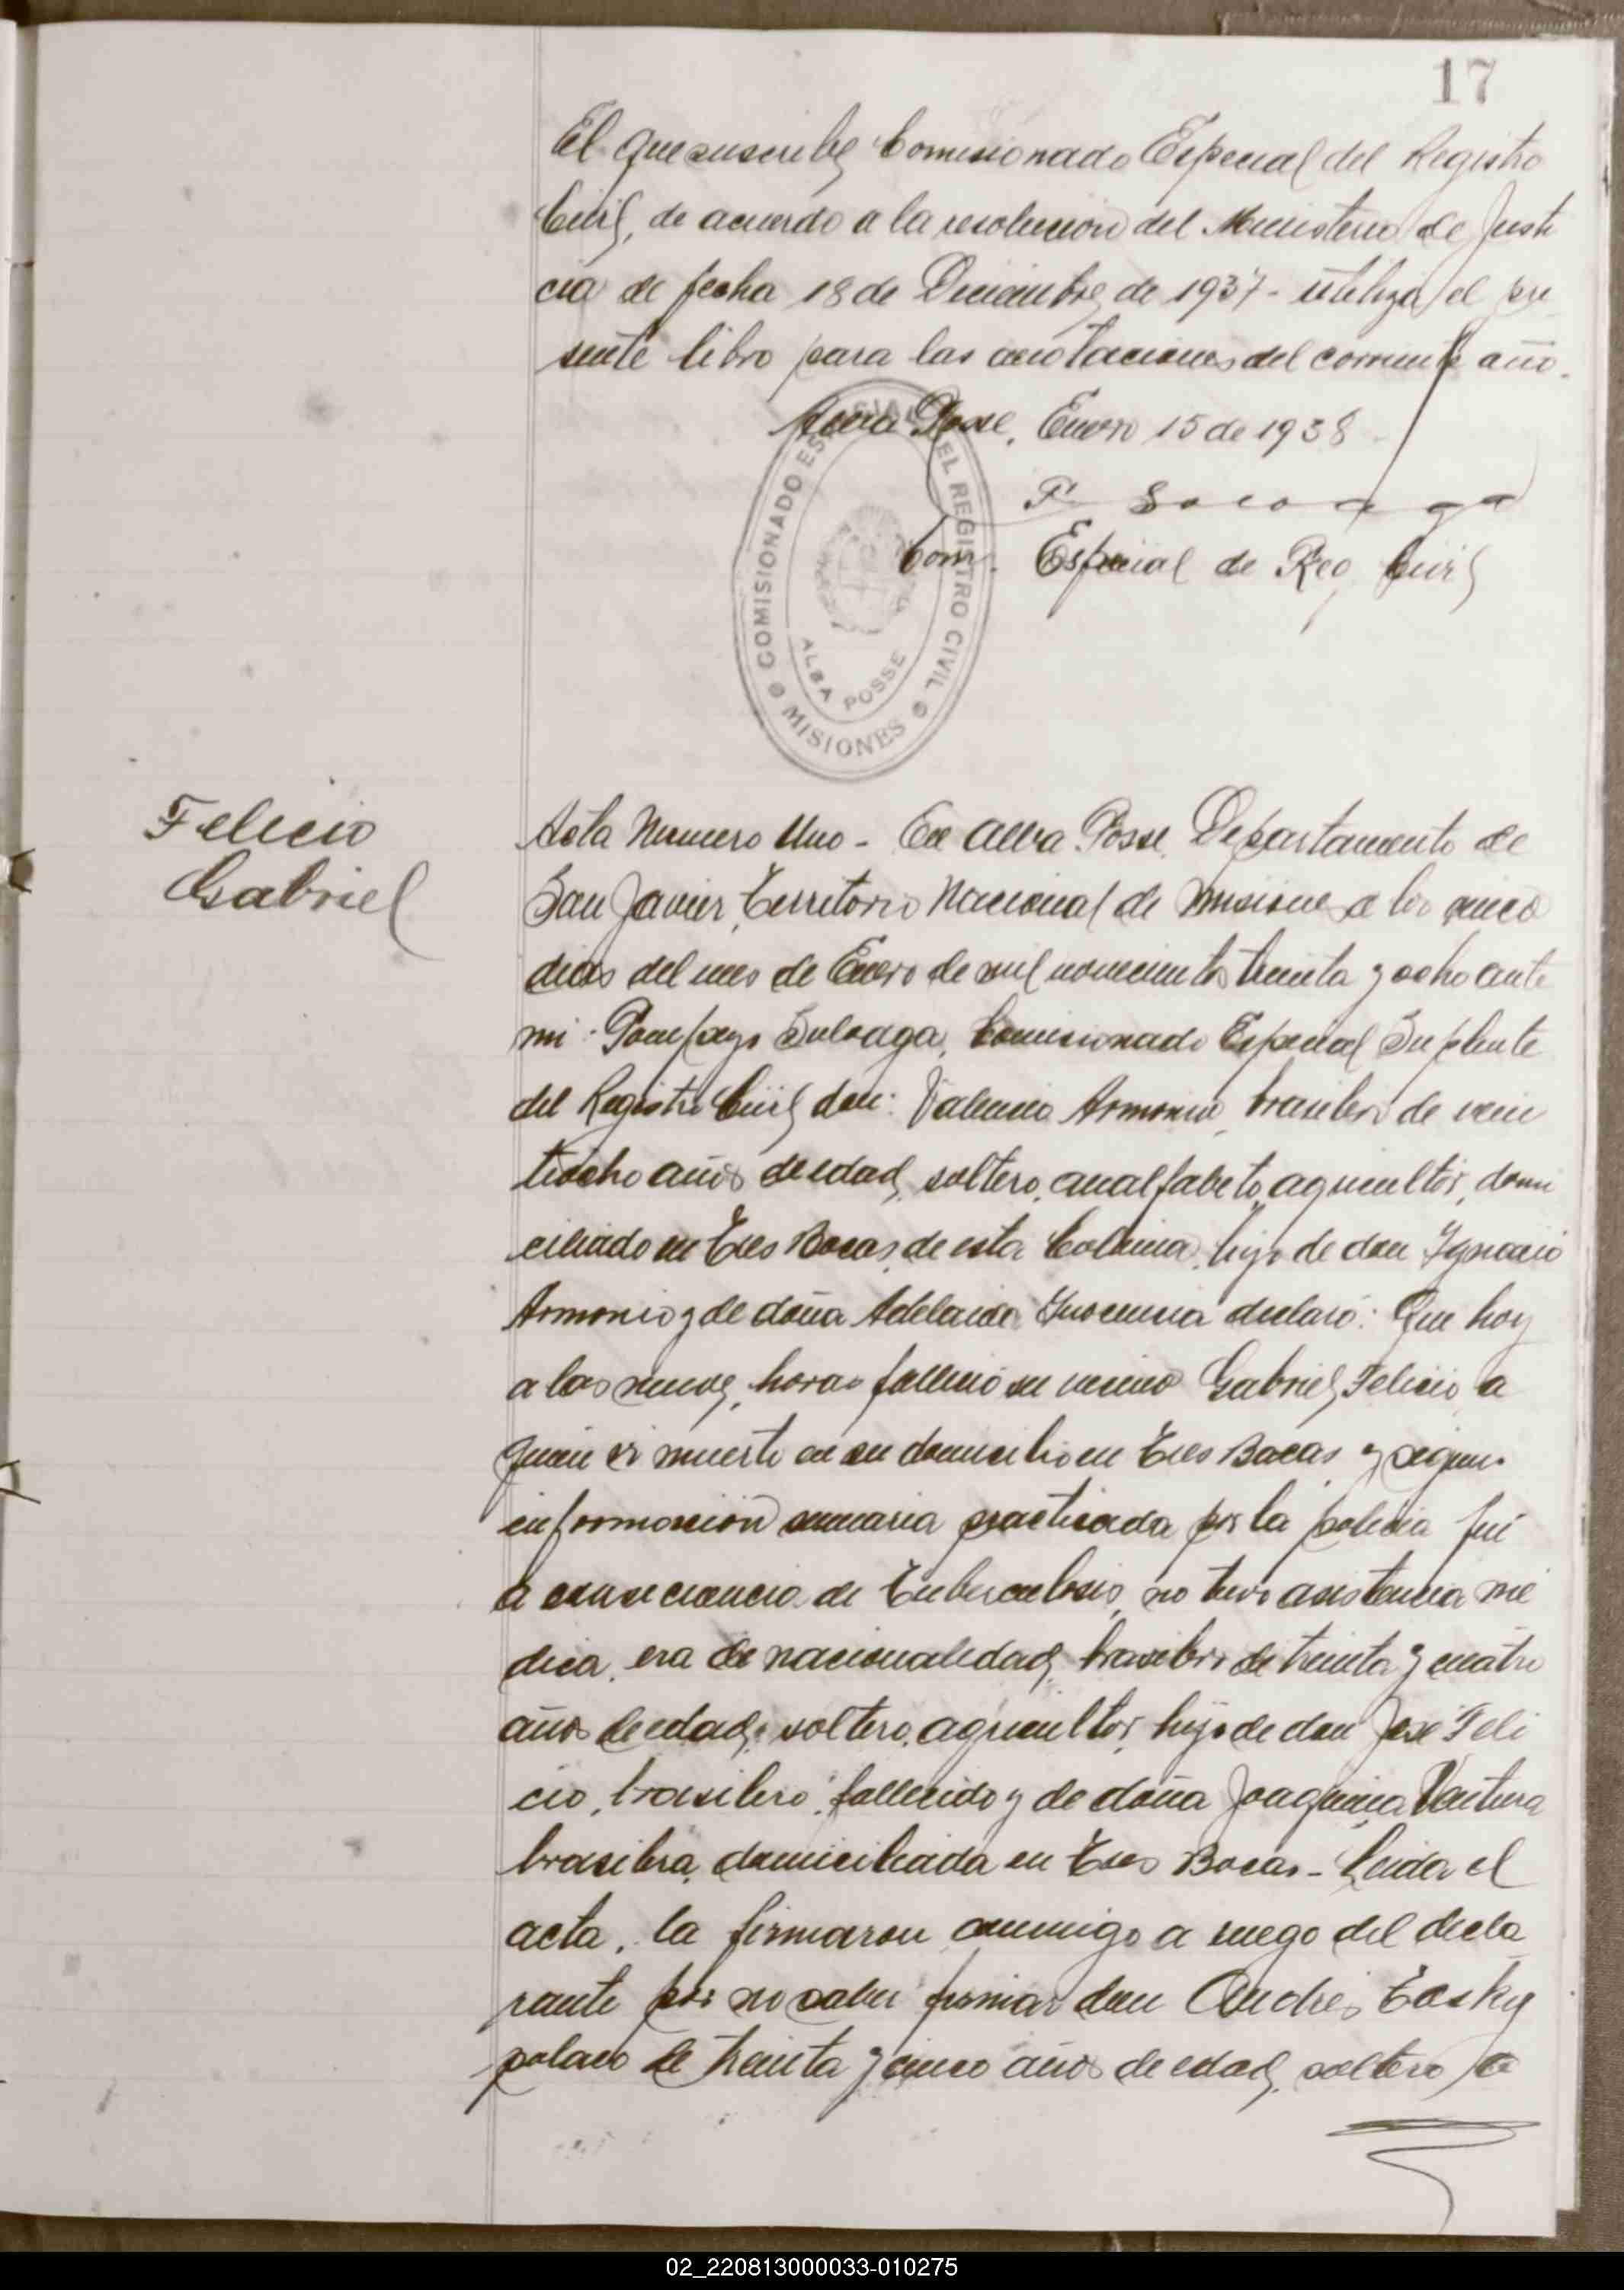 17
El que suscribe Comisionado Especial del Registro
Civil, de acuerdo a la resolucion del Ministerio de Justi
cia de fecha 18 de Diciembre de 1937 - utiliza el pre
sente libro para las anotaciones del corriente año.
Alba Posse, Enero 15 de 1938
P. Soloaga
Com. Especial de Reg. Civil
COMISIONADO ESPECIAL DEL REGISTRO CIVIL
ALBA POSSE
MISIONES
Felicio
Gabriel
Acta Numero Uno - En Alba Posse, Departamento de
San Javier, Territorio Nacional de Misiones a los quince
dias del mes de Enero de mil novecientos treinta y ocho ante
mi: Pompeyo Soloaga, Comisionado Especial Suplente
del Registro Civil don: Valencio Armonio, brasilero de vein
tiocho años de edad, soltero, analfabeto, agricultor, domi
ciliado en Tres Bocas, de esta Colonia, hijo de don Ignacio
Armonio y de doña Adelaida Inocencia declaró: Que hoy
a las nueve horas falleció su vecino Gabriel Felicio, a
quien vi muerto en su domicilio en Tres Bocas y segun
informacion sumaria practicada por la policia fué
a consecuencia de Tuberculosis, no tuvo asistencia mé
dica, era de nacionalidad brasilero de treinta y cuatro
años de edad, soltero, agricultor, hijo de don José Feli
cio, brasilero, fallecido y de doña Joaquina Ventura
brasilera, domiciliada en Tres Bocas - Leida el
acta, la firmaron conmigo a ruego del decla
rante por no saber firmar don Andrés Tosky
polaco de treinta y cinco años de edad, soltero, a
02_220813000033-010275